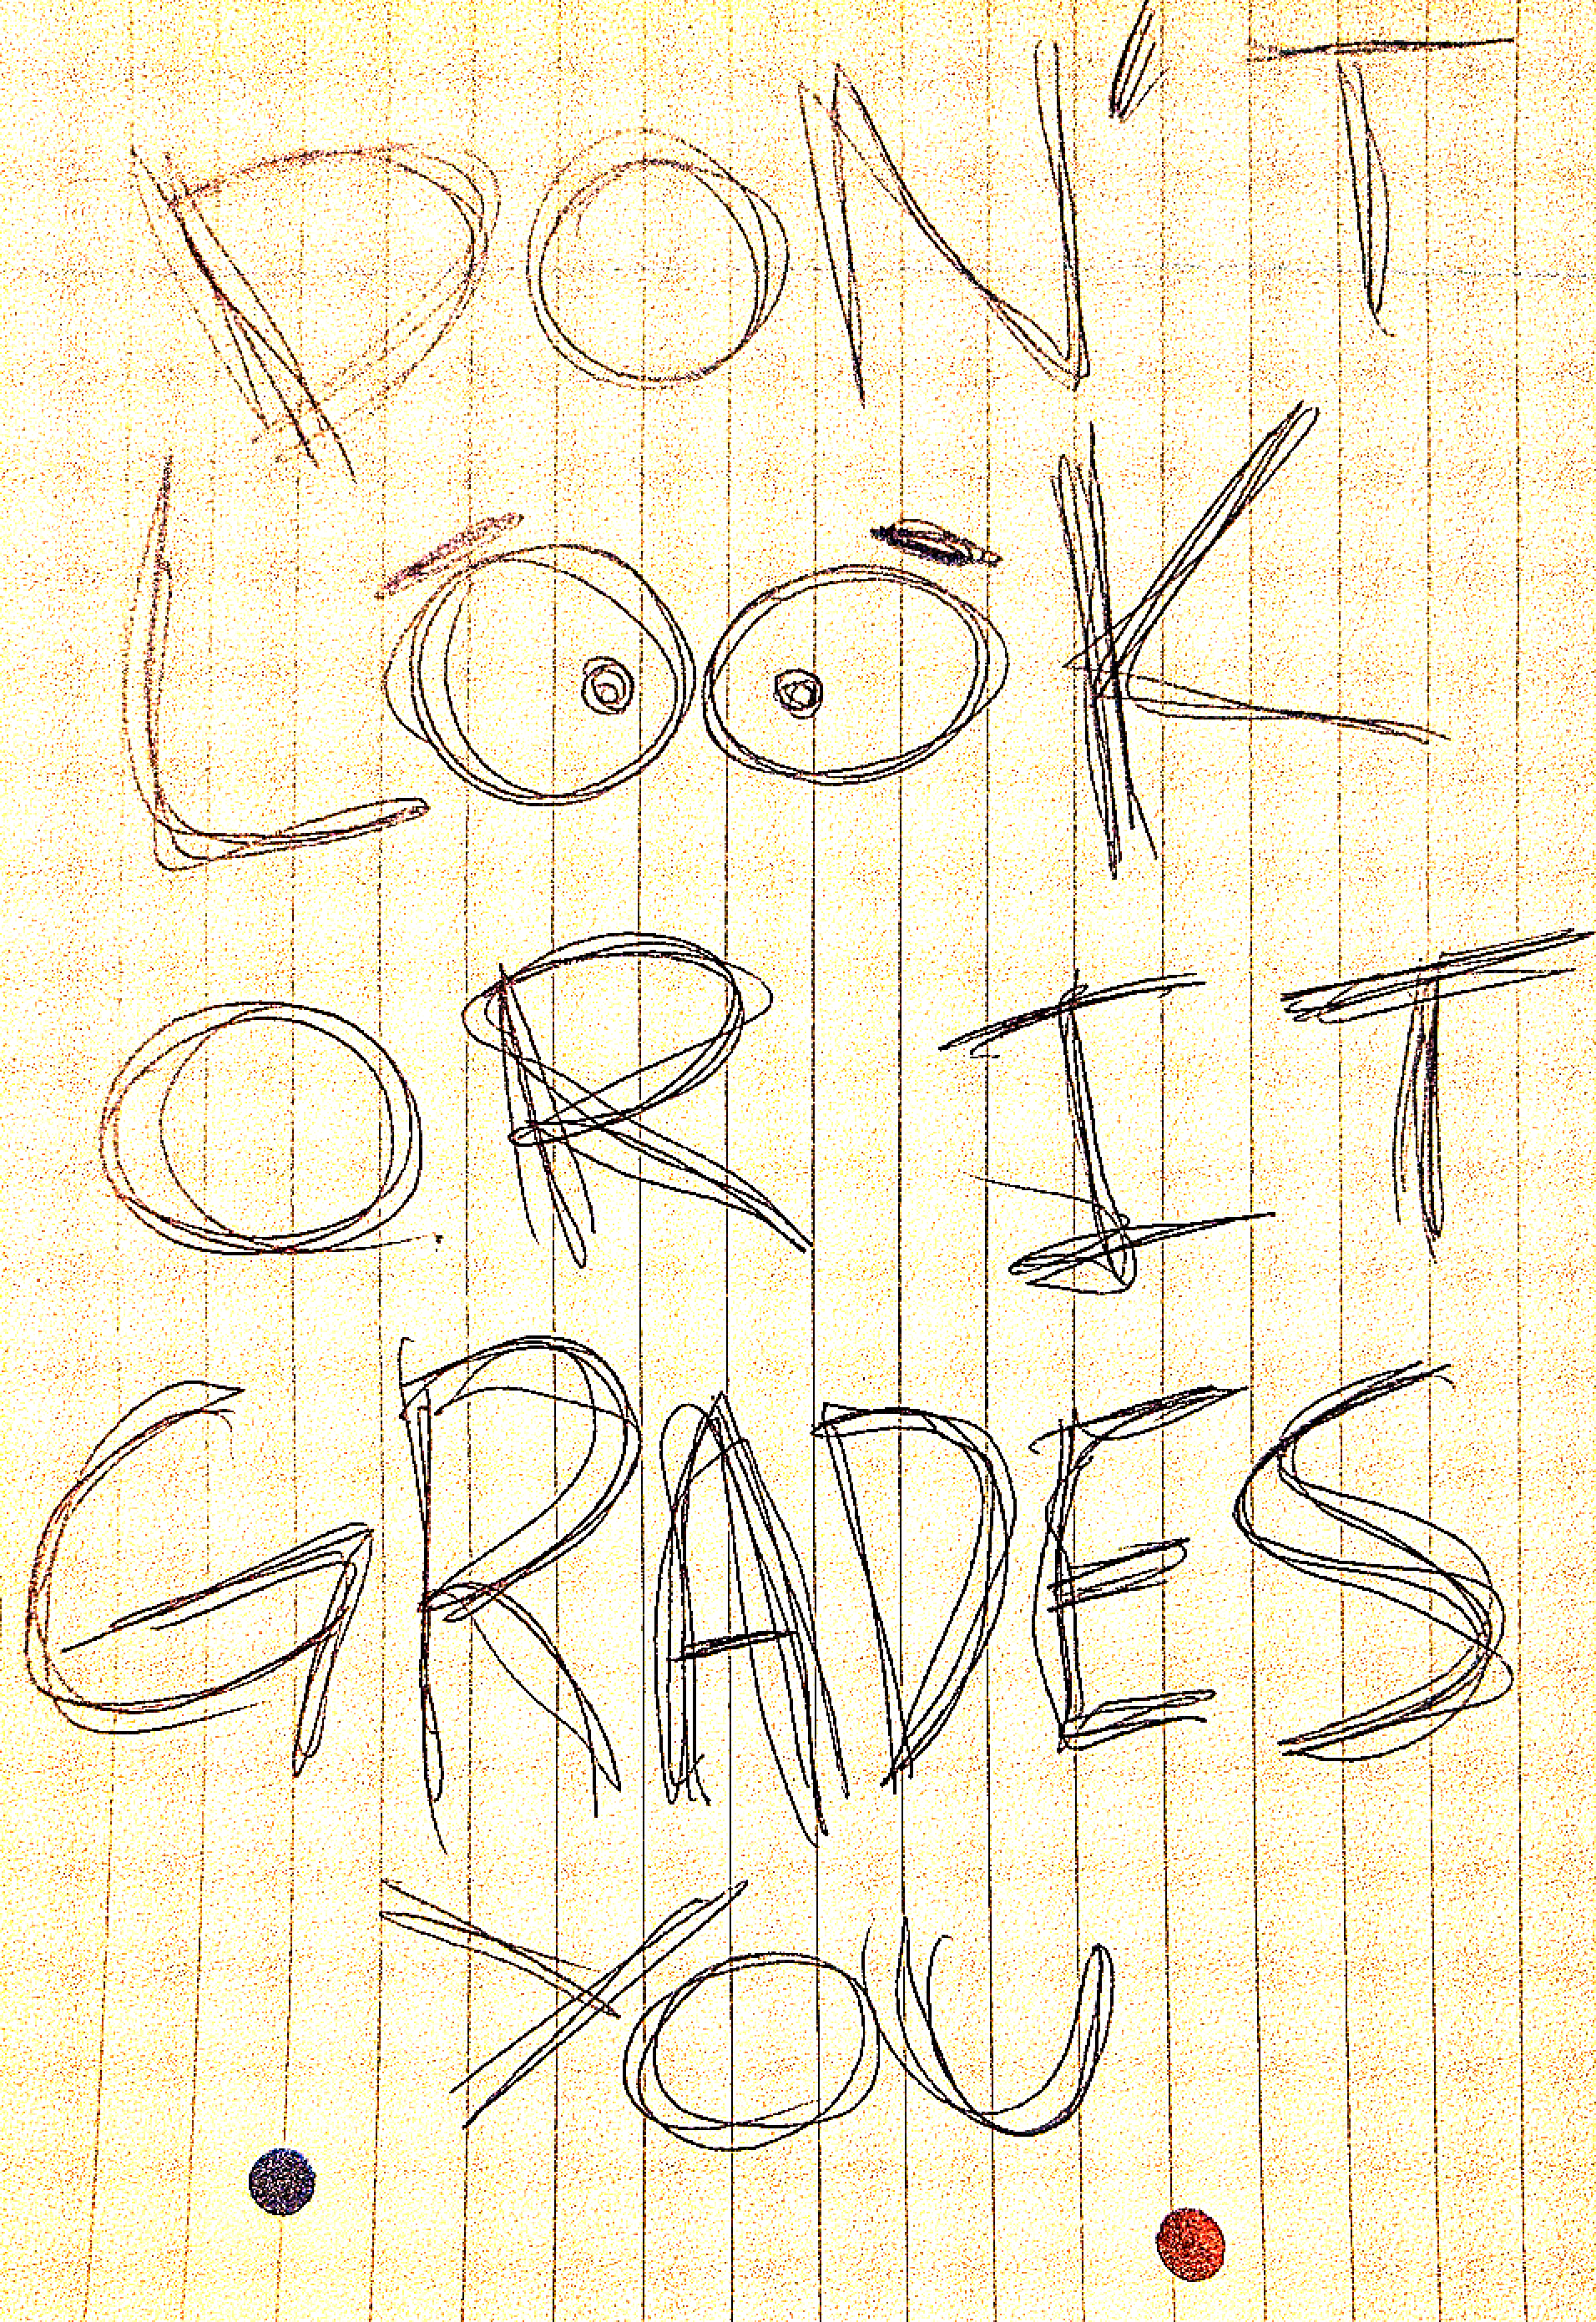 DON'T
LOOK
OR IT
GRADES
YOU